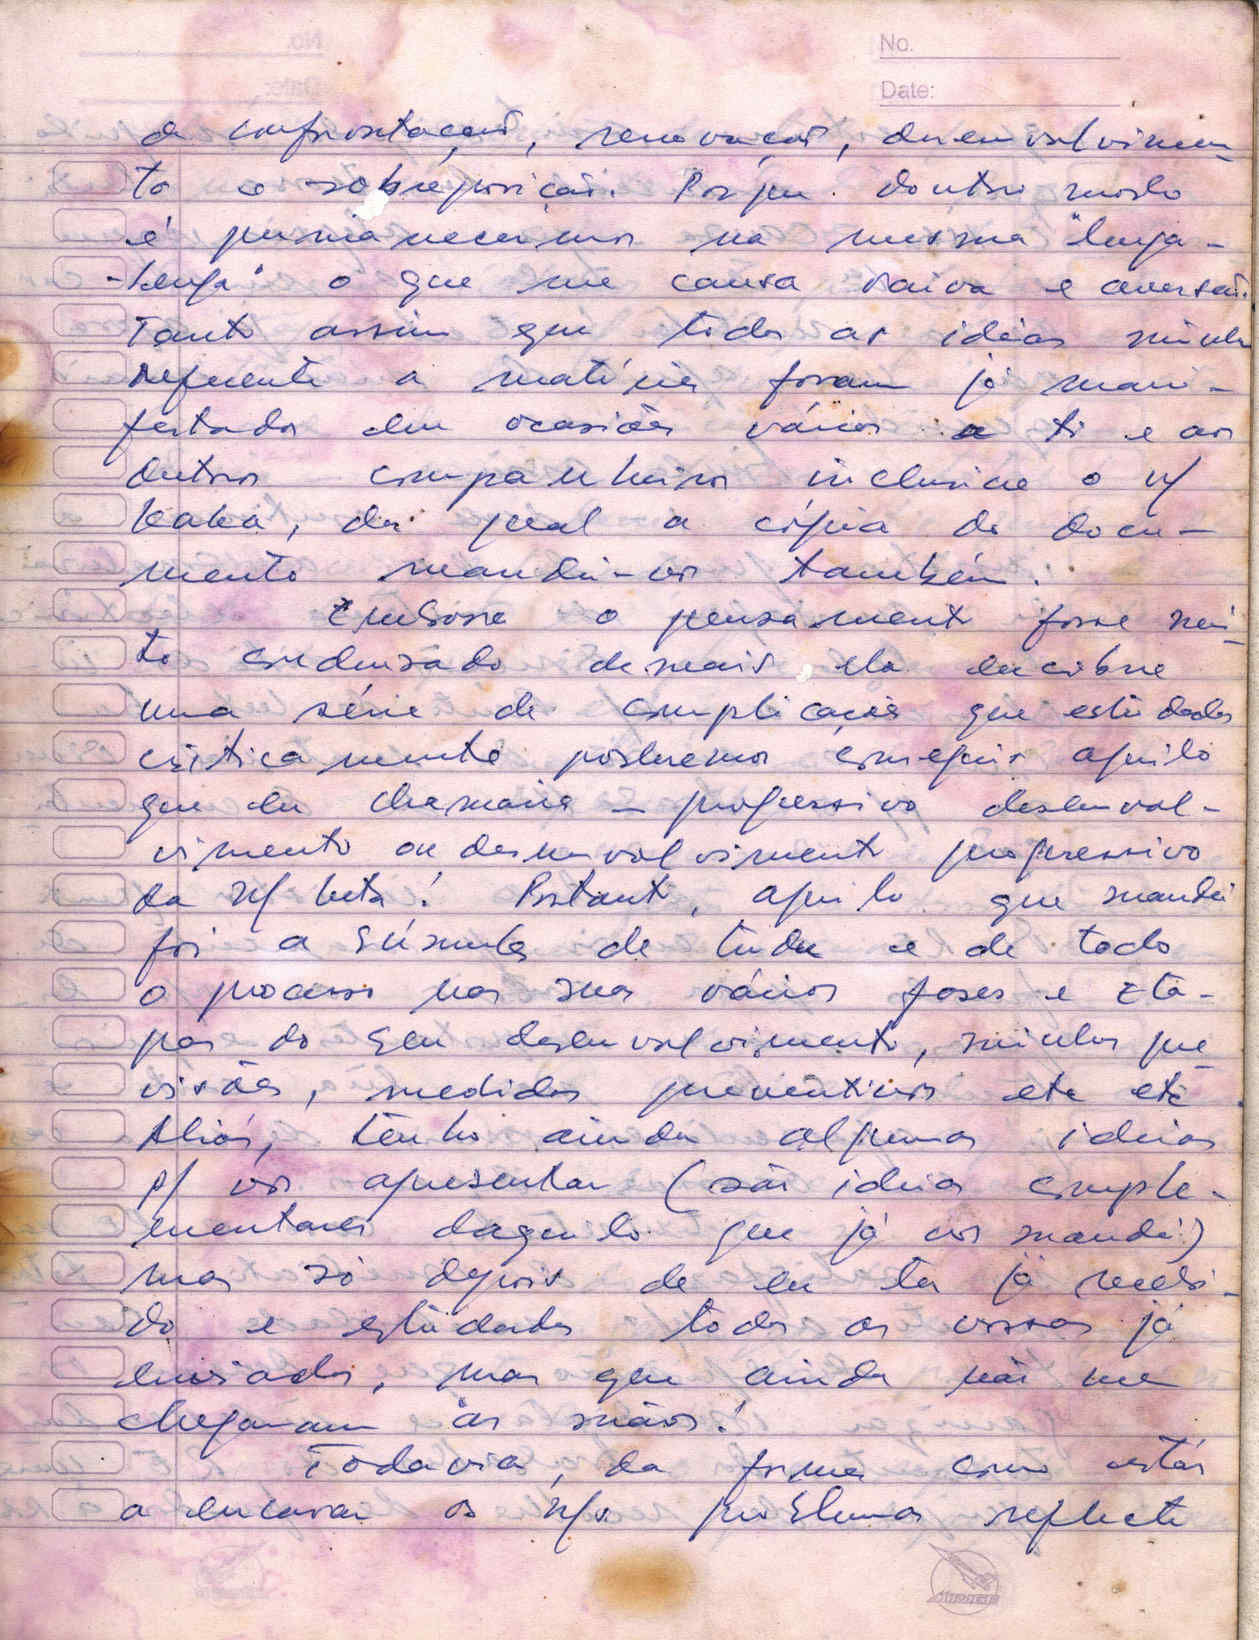 No.
Date:
de confrontação, renovação, desenvolvimen-
to e sobreposição. Porque doutro modo
é permanecermos na mesma "lenga-
-lenga" o que me causa raiva e aversão.
Tanto assim que todas as idéias minhas
referente a matéria foram já mani-
festadas em ocasiões várias a ti e aos
outros companheiros inclusive o n/
kaka, da qual a cópia do docu-
mento mandei-vos também.
Embora o pensamento fosse mui-
to condensado demais, ela encobre
uma série de complicações que estudadas
criticamente poderemos conseguir aquilo
que eu chamaria — progressivo desenvol-
vimento ou desenvolvimento progressivo
da n/ luta! Portanto, aquilo que mandei
foi a súmula de tudo e de todo
o processo nas suas várias fases e eta-
pas do seu desenvolvimento, minhas pre-
visões, medidas preventivas etc etc.
Aliás, tenho ainda algumas idéias
p/ vos apresentar (são idéias comple-
mentares daquilo que já vos mandei)
mas só depois de eu ter já recebi-
do e estudado todas as vossas já
enviadas, mas que ainda não me
chegaram às mãos!
Todavia, da forma como estás
a encarar os n/s problemas reflecte